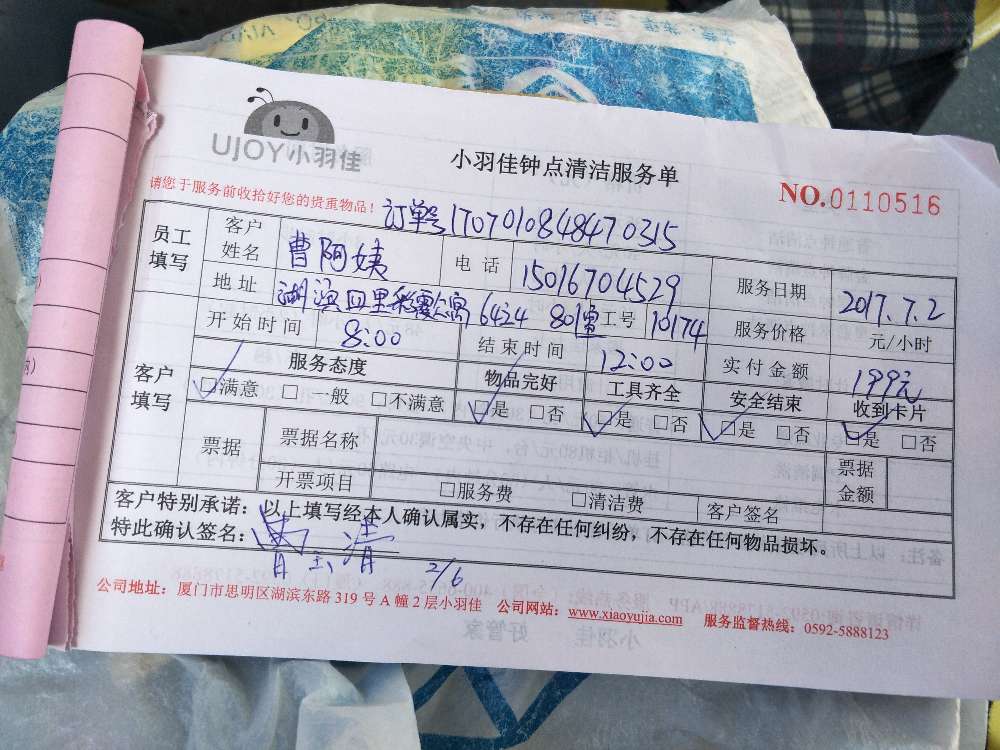 UJOY小羽佳
小羽佳钟点清洁服务单
NO.0110516
请您于服务前收拾好您的贵重物品！
订单号1707010848470315
员工填写 客户姓名 曹阿姨 电话 15016704529 服务日期 2017.7.2
地址 湖滨四里 6424 801 工号 10174 服务价格 元/小时
开始时间 8:00 结束时间 12:00 实付金额 199元
客户填写 服务态度 物品完好 工具齐全 安全结束 收到卡片
□满意 □一般 □不满意 □是 □否 □是 □否 □是 □否 □是 □否
票据 票据名称 票据金额
开票项目 □服务费 □清洁费 客户签名
客户特别承诺：以上填写经本人确认属实，不存在任何纠纷，不存在任何物品损坏。
特此确认签名： 2/6
公司地址：厦门市思明区湖滨东路 319 号 A 幢 2 层小羽佳 公司网站：www.xiaoyujia.com 服务监督热线：0592-5888123